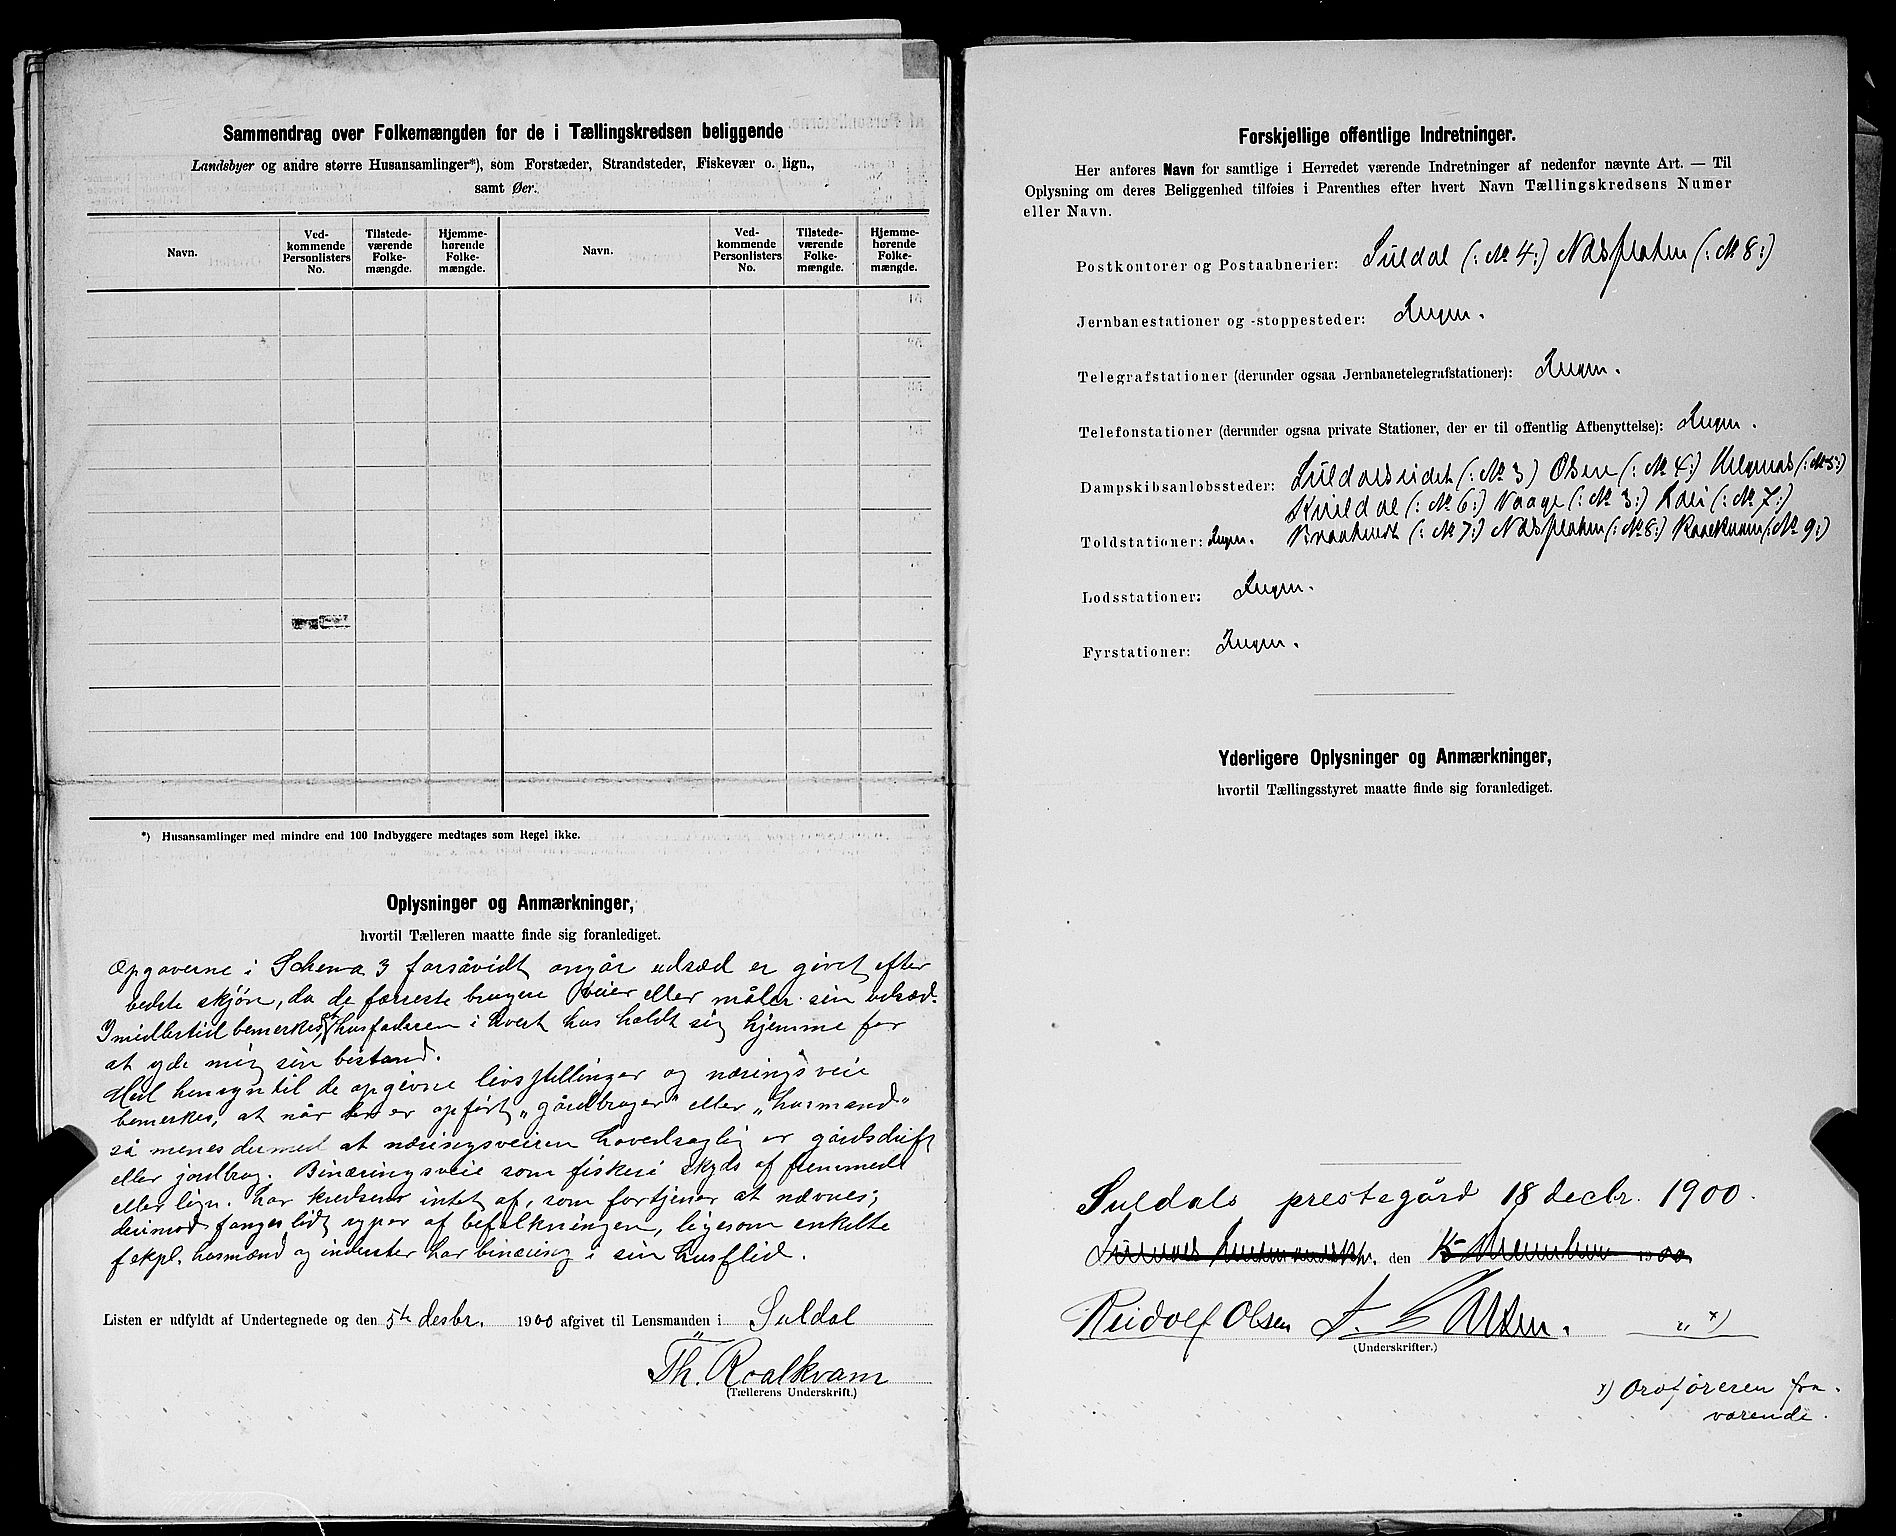 Sammendrag over Folkemængden for de i Tællingskredsen beliggende
Landsbyer og andre større Husansamlinger*), som Forstæder, Strandsteder, Fiskevær o. lign.,
samt Øer.
Navn. Ved-kommende Personlisters No. Tilstede-værende Folke-mængde. Hjemme-hørende Folke-mængde. Navn. Ved-kommende Personlisters No. Tilstede-værende Folke-mængde. Hjemme-hørende Folke-mængde.
*) Husansamlinger med mindre end 100 Indbyggere medtages som Regel ikke.
Oplysninger og Anmærkninger,
hvortil Tælleren maatte finde sig foranlediget.
Opgaverne i Schema 3 forsåvidt angår udsæd er givet efter
bedste skjøn, da de færreste brugere veier eller måler sin udsæd.
Imidlertid bemerkes, at husfaderen i hvert hus holdt sig hjemme for
at yde mig sin bistand.
Med hensyn til de opgivne livsstillinger og næringsveie
bemerkes, at når der er opført „gårdbruger“ eller „husmand“
så menes dermed at næringsveien hovedsagelig er gårdsdrift
eller jordbrug. Binæringsveie som fiskeri skyds af fremmede
eller lign. har kredsen intet af, som fortjener at nævnes;
derimod fanges lidt ryper af befolkningen, ligesom enkelte
f. expl. husmænd og inderster har binæring i sin husflid.
Listen er udfyldt af Undertegnede og den 5te desbr. 1900 afgivet til Lensmanden i Suldal
Th. Roalkvam
(Tællerens Underskrift.)
Forskjellige offentlige Indretninger.
Her anføres Navn for samtlige i Herredet værende Indretninger af nedenfor nævnte Art. — Til
Oplysning om deres Beliggenhed tilføies i Parenthes efter hvert Navn Tællingskredsens Numer
eller Navn.
Postkontorer og Postaabnerier: Suldal (: № 4:) Næsflaten (: № 8:)
Jernbanestationer og -stoppesteder: Ingen.
Telegrafstationer (derunder ogsaa Jernbanetelegrafstationer): Ingen.
Telefonstationer (derunder ogsaa private Stationer, der er til offentlig Afbenyttelse): Ingen.
Dampskibsanløbssteder: Suldalseidet (: № 3) Olsen (: № 4:) Helgenæs (: № 5:)
Kvildal (: № 6:) Vaage (: № 3:) Kali (: № 7:)
Toldstationer: Ingen. Braahust (: № 7:) Næsflaten (: № 8:) Roalkvam (: № 9:)
Lodsstationer: Ingen.
Fyrstationer: Ingen.
Yderligere Oplysninger og Anmærkninger,
hvortil Tællingsstyret maatte finde sig foranlediget.
Suldals prestegård 18 decbr. 1900.
den 1900
Reidolf Olsen
„ x)
(Underskrifter.)
x) Ordføreren fra-
værende.